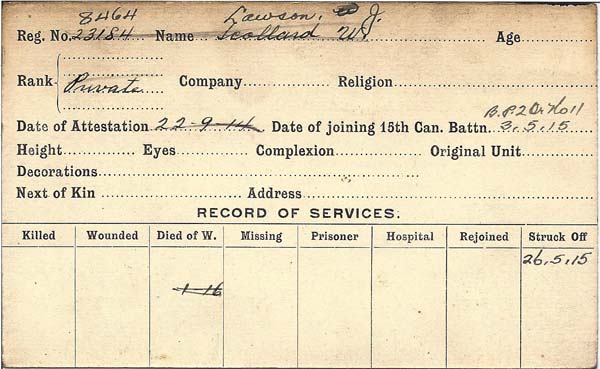 8464 Lawson, J.
Reg. No. 23184 Name Scollard W. Age
Rank Private Company Religion
B.P.2 Or.
Date of Attestation 22-9-14 Date of joining 15th Can. Battn. 3.5.15
Height Eyes Complexion Original Unit
Decorations
Next of Kin Address
RECORD OF SERVICES.
Killed Wounded Died of W. Missing Prisoner Hospital Rejoined Struck Off
26.5.15
1-16